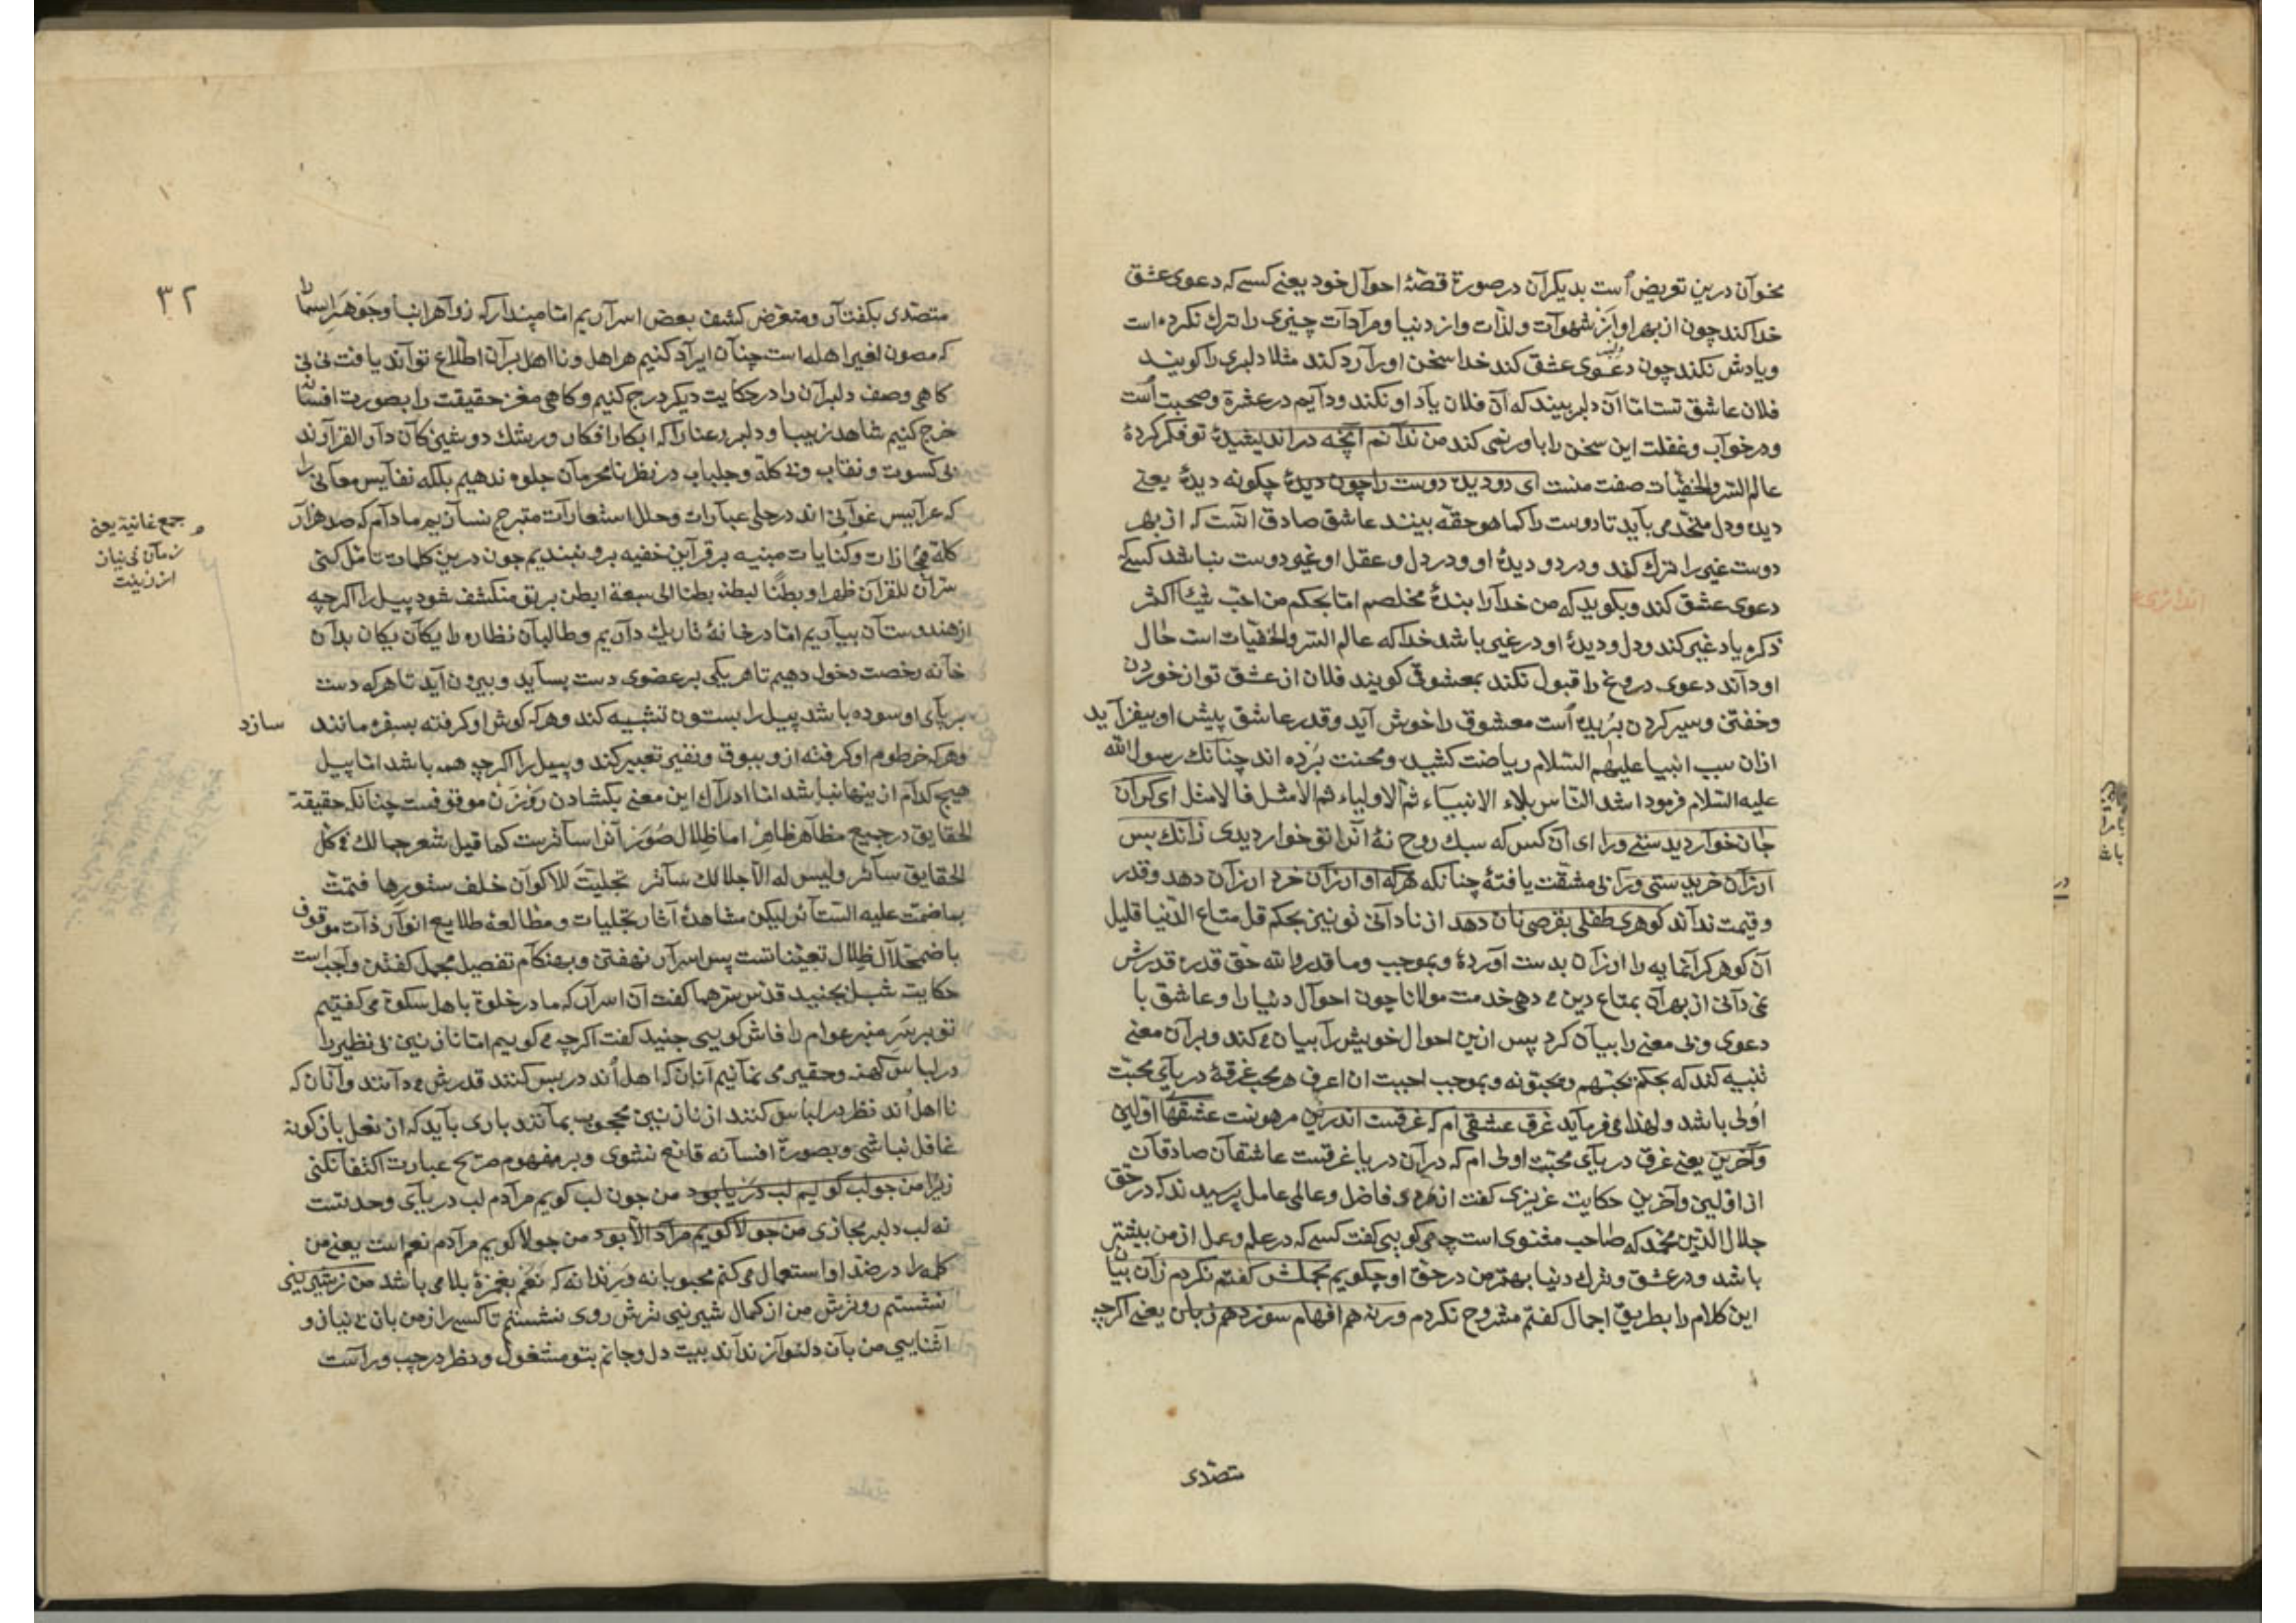 مخوان درین تعریض است بدیکران در صورة قصهٔ احوال خود یعنی کسی که دعوی عشق
خدا کند چون از بهر او از شهوات ولذات واز دنیا ومرادات چیزی را ترك نکرده است
ویادش نکند چون دعوی عشق کند خدا سخن اورا رد کند مثلا دلبری را کویند
فلان عاشق تست اما آن دلبر بیند که آن فلان یاد او نکند ودایم در عشرة وصحبت است
ودر خواب وغفلت این سخن را باور نمی کند من ندانم آنچه در اندیشیدهٔ تو فکر کردهٔ
عالم السر والخفیات صفت منست ای دو دیده دوست را چون دیدهٔ چکونه دیدهٔ یعنی
دیده ودل متحد می باید تا دوست را کما هو حقه بینند عاشق صادق آنست که از بهر
دوست غیر را ترك کند ودر دو دیدهٔ او ودر دل وعقل او غیر دوست نباشد کسی که
دعوی عشق کند وبکوید که من خدا را بندهٔ مخلصم اما بحکم من احب شیئا اکثر
ذکره یاد غیر کند ودل ودیدهٔ او در غیر باشد خدا که عالم السر والخفیات است حال
او داند دعوی دروغ را قبول نکند بمعشوقی کویند فلان از عشق تو از خوردن
وخفتن وسیر کردن بریده است معشوق را خوش آید وقدر عاشق پیش او بیفزاید
ازان سبب انبیا علیهم السلام ریاضت کشیده ومحنت برده اند چنانك رسول الله
علیه السلام فرمود اشد الناس بلاء الانبیاء ثم الاولیاء ثم الامثل فالامثل ای کران
جان خوار دیدستی ورا ای آن کس که سبك روح نهٔ آنرا تو خوار دیدی زانك بس
ارزان خریدستی ورا بی مشقت یافتهٔ چنانکه هرکه او ارزان خرد ارزان دهد وقدر
وقیمت نداند کوهری طفلی بقرصی نان دهد از نادانی تو نیز بحکم قل متاع الدنیا قلیل
آن کوهر کرانمایه را ارزان بدست آوردهٔ وبموجب وما قدروا لله حق قدره قدرش
نمی دانی از بهر آن بمتاع دین می دهی خدمت مولانا چون احوال دنیا را وعاشق با
دعوی وبی معنی را بیان کرد پس ازین احوال خویش را بیان می کند وبر آن معنی
تنبیه کند که بحکم یحبهم ویحبونه وبموجب احببت ان اعرف هر محب غرقهٔ دریای محبت
اولی باشد ولهذا می فرماید غرق عشقی ام که غرقست اندرین مر هوست عشقهای اولین
وآخرین یعنی غرق دریای محبت اولی ام که در آن دریا غرقست عاشقان صادقان
از اولین وآخرین حکایت عزیزی کفت از مردی فاضل وعالمی عامل پرسیدند که در حق
جلال الدین محمد که صاحب مثنوی است چه می کویی کفت کسی که در علم وعمل از من بیشتر
باشد ودر عشق وترك دنیا بهتر من در حق او چکویم مجملش کفتم نکردم زان بیان
این کلام را بطریق اجمال کفتم مشروح نکردم ورنه هم افهام سوزد هم زبان یعنی اکرچه
متصدی
٣٢
متصدی بکفتار ومتعرض کشف بعض اسراریم اما مپندار که زواهر انبا وجواهر اسما را
که مصون لغیر اهله است چنان ایراد کنیم هر اهل ونااهل بر آن اطلاع تواند یافت نی نی
کاهی وصف دلبران را در حکایت دیکر درج کنیم وکاهی مغز حقیقت را بصورت افسانه
خرج کنیم شاهد زیبا ودلبر رعنا را که ابکار افکار ورشك دوشیزکان دار القرارند
بی کسوت ونقاب وبی کله وجلباب در نظر نامحرمان جلوه ندهیم بلکه نفایس معانی را
که عرایس غوانی اند در حلی عبارات وحلل استعارات متبرج نسازیم مادام که صد هزار
کلهٔ مجازات وکنایات مبنیه بر قراین خفیه برو نبندیم چون درین کلمات تأمل کنی
سر ان للقرآن ظهرا وبطنا لبطنه بطنا الی سبعة ابطن بر تو منکشف شود پیل را اکرچه
از هندوستان بیاریم اما در خانهٔ تاریك داریم وطالبان نظاره را یکان یکان بدان
خانه رخصت دخول دهیم تا هر یکی بر عضوی دست بساید وبیرون آید تا هرکه دست
بر پای او سوده باشد پیل را بستون تشبیه کند وهرکه کوش او کرفته بسفره مانند سازد
وهرکه خرطوم او کرفته ازو ببوق ونفیر تعبیر کند وپیل را اکرچه همه باشد اما پیل
هیچ کدام از ینها نباشد اما ادراك این معنی بکشادن روزن موقوفست چنانکه حقیقة
الحقایق در جمیع مظاهر ظاهر اما ظلال صور آنرا ساترست کما قیل شعر جمالك فی کل
الحقایق سائر ولیس له الا جلالك ساتر تجلیت للاکوان خلف ستورها فنمت
بما ضمت علیه الستائر لیکن مشاهدهٔ آثار تجلیات ومطالعهٔ طلایع انوار ذات موقوف
باضمحلال ظلال تعیناتست پس اسرار نهفتن وبهنکام تفصیل مجمل کفتن واجب است
حکایت شبلی بجنید قدس سرهما کفت آن اسرار که ما در خلوة با اهل سکوة می کفتیم
تو بر سر منبر عوام را فاش کویی جنید کفت اکرچه می کوییم اما نازنین بی نظیر را
در لباس کهنه وحقیر می نمانیم آنان که اهل اند در بس کنند قدرش می دانند وآنان که
نااهل اند نظر در لباس کنند از نازنین محجوب بمانند باری باید که از نعل بازکونه
غافل نباشی وبصورة افسانه قانع نشوی وبر مفهوم صریح عبارت اکتفا نکنی
زیرا من چو لب کویم لب دریا بود من چون لب کویم مرادم لب دریای وحدتست
نه لب دلبر مجازی من چو لا کویم مراد الا بود من چو لا کویم مرادم نعم است یعنی من
کلمه را در ضد او استعمال می کنم محبوبانه ورندانه که نعم بغمزهٔ بلا می باشد من ز شیرینی
نشستم رو ترش من از کمال شیرینی ترش روی نشستم تا کسی راز من بان بی نیاز و
آشنایی من بآن دلنواز نداند بیت دل وجانم بتو مشغول ونظر در چپ وراست
جمع غانیة یعنی
زنان بی نیاز
از زینت